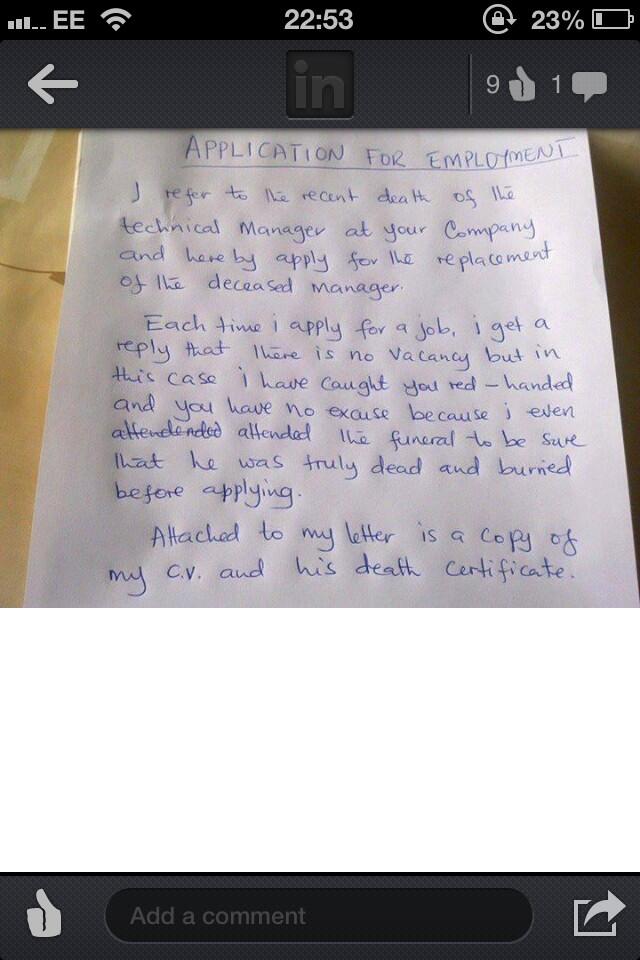 EE 22:53 23%
in 9 1
APPLICATION FOR EMPLOYMENT
I refer to the recent death of the
technical Manager at your Company
and here by apply for the replacement
of the deceased manager.
Each time i apply for a job, i get a
reply that there is no Vacancy but in
this case i have caught you red-handed
and you have no excuse because i even
attendended attended the funeral to be sure
that he was truly dead and burried
before applying.
Attached to my letter is a copy of
my C.V. and his death certificate.
Add a comment